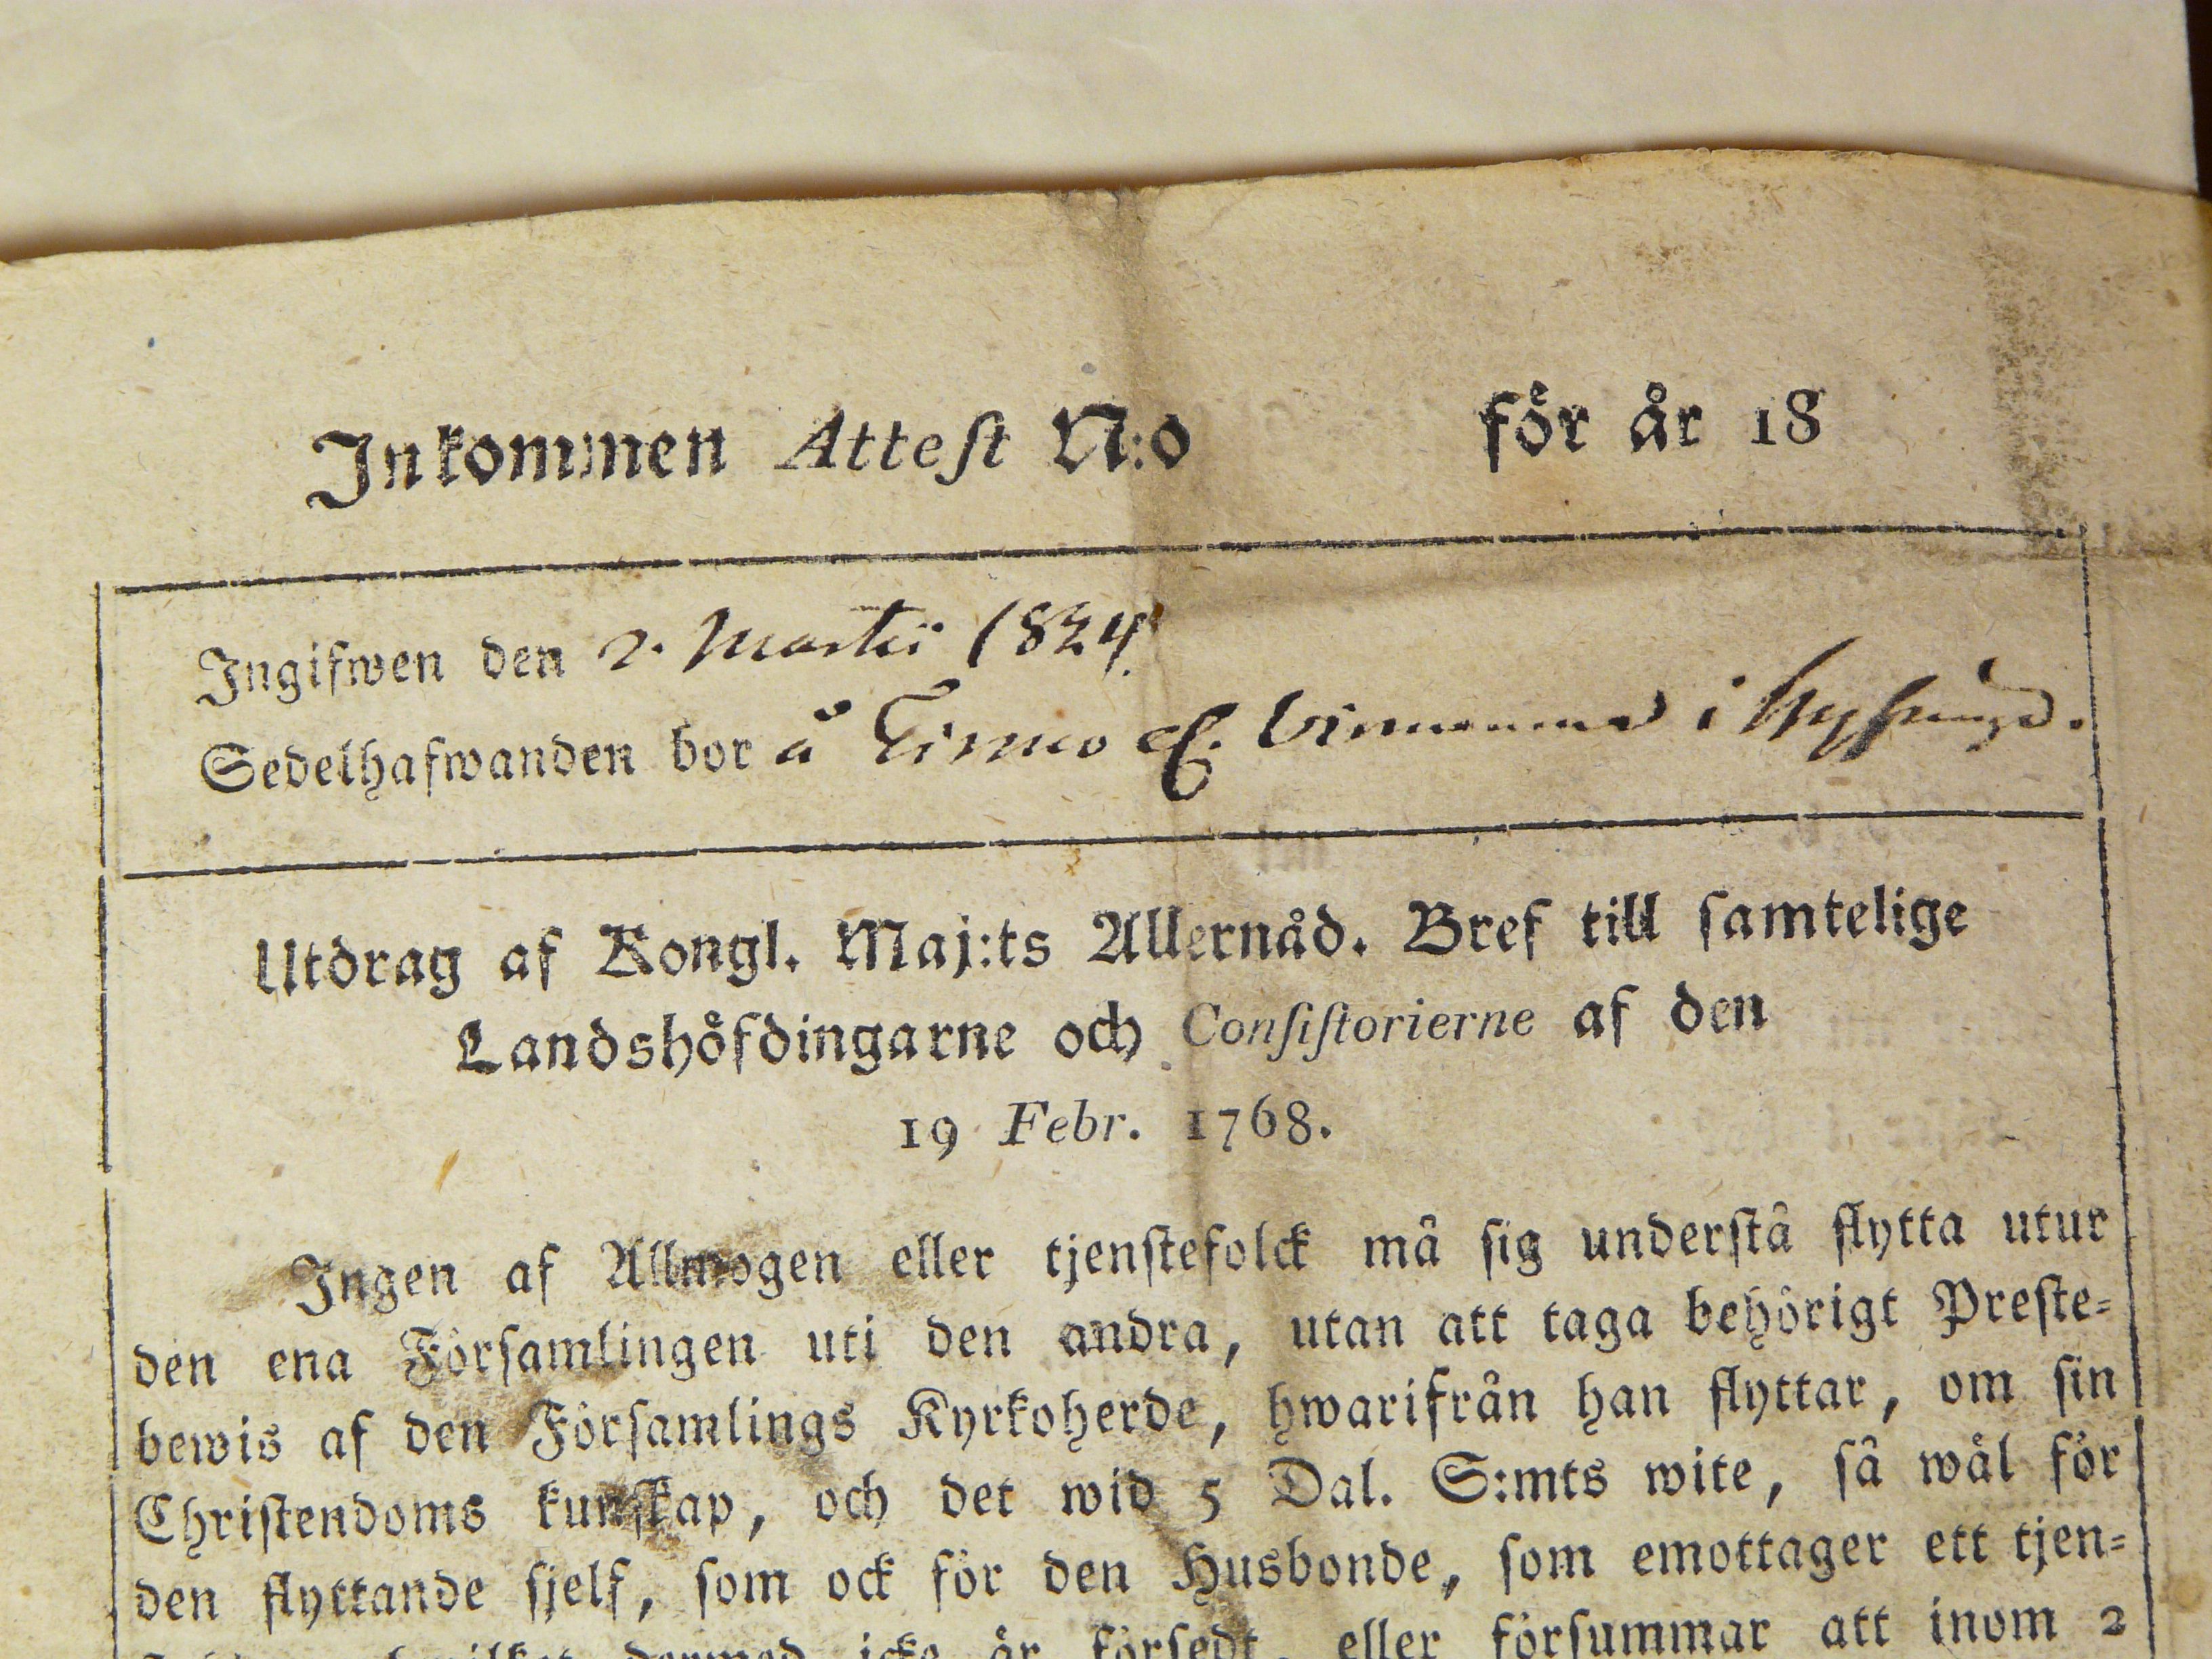 Inkommen Atteſt N:o för år 18
Ingifwen den 2. Martii 1824
Sedelhafwanden bor å Timmo i
Utdrag af Kongl. Maj:ts Allernåd. Bref till ſamtelige
Landshöfdingarne och Conſiſtorierne af den
19 Febr. 1768.
Ingen af Allmogen eller tjenſtefolck må ſig underſtå flytta utur
den ena Förſamlingen uti den andra, utan att taga behörigt Preſte-
bewis af den Förſamlings Kyrkoherde, hwarifrån han flyttar, om ſin
Chriſtendoms kunſkap, och det wid 5 Dal. S:mts wite, ſå wäl för
den flyttande ſjelf, ſom ock för den Husbonde, ſom emottager ett tjen-
dermed icke är förſedt, eller förſummar att inom 2